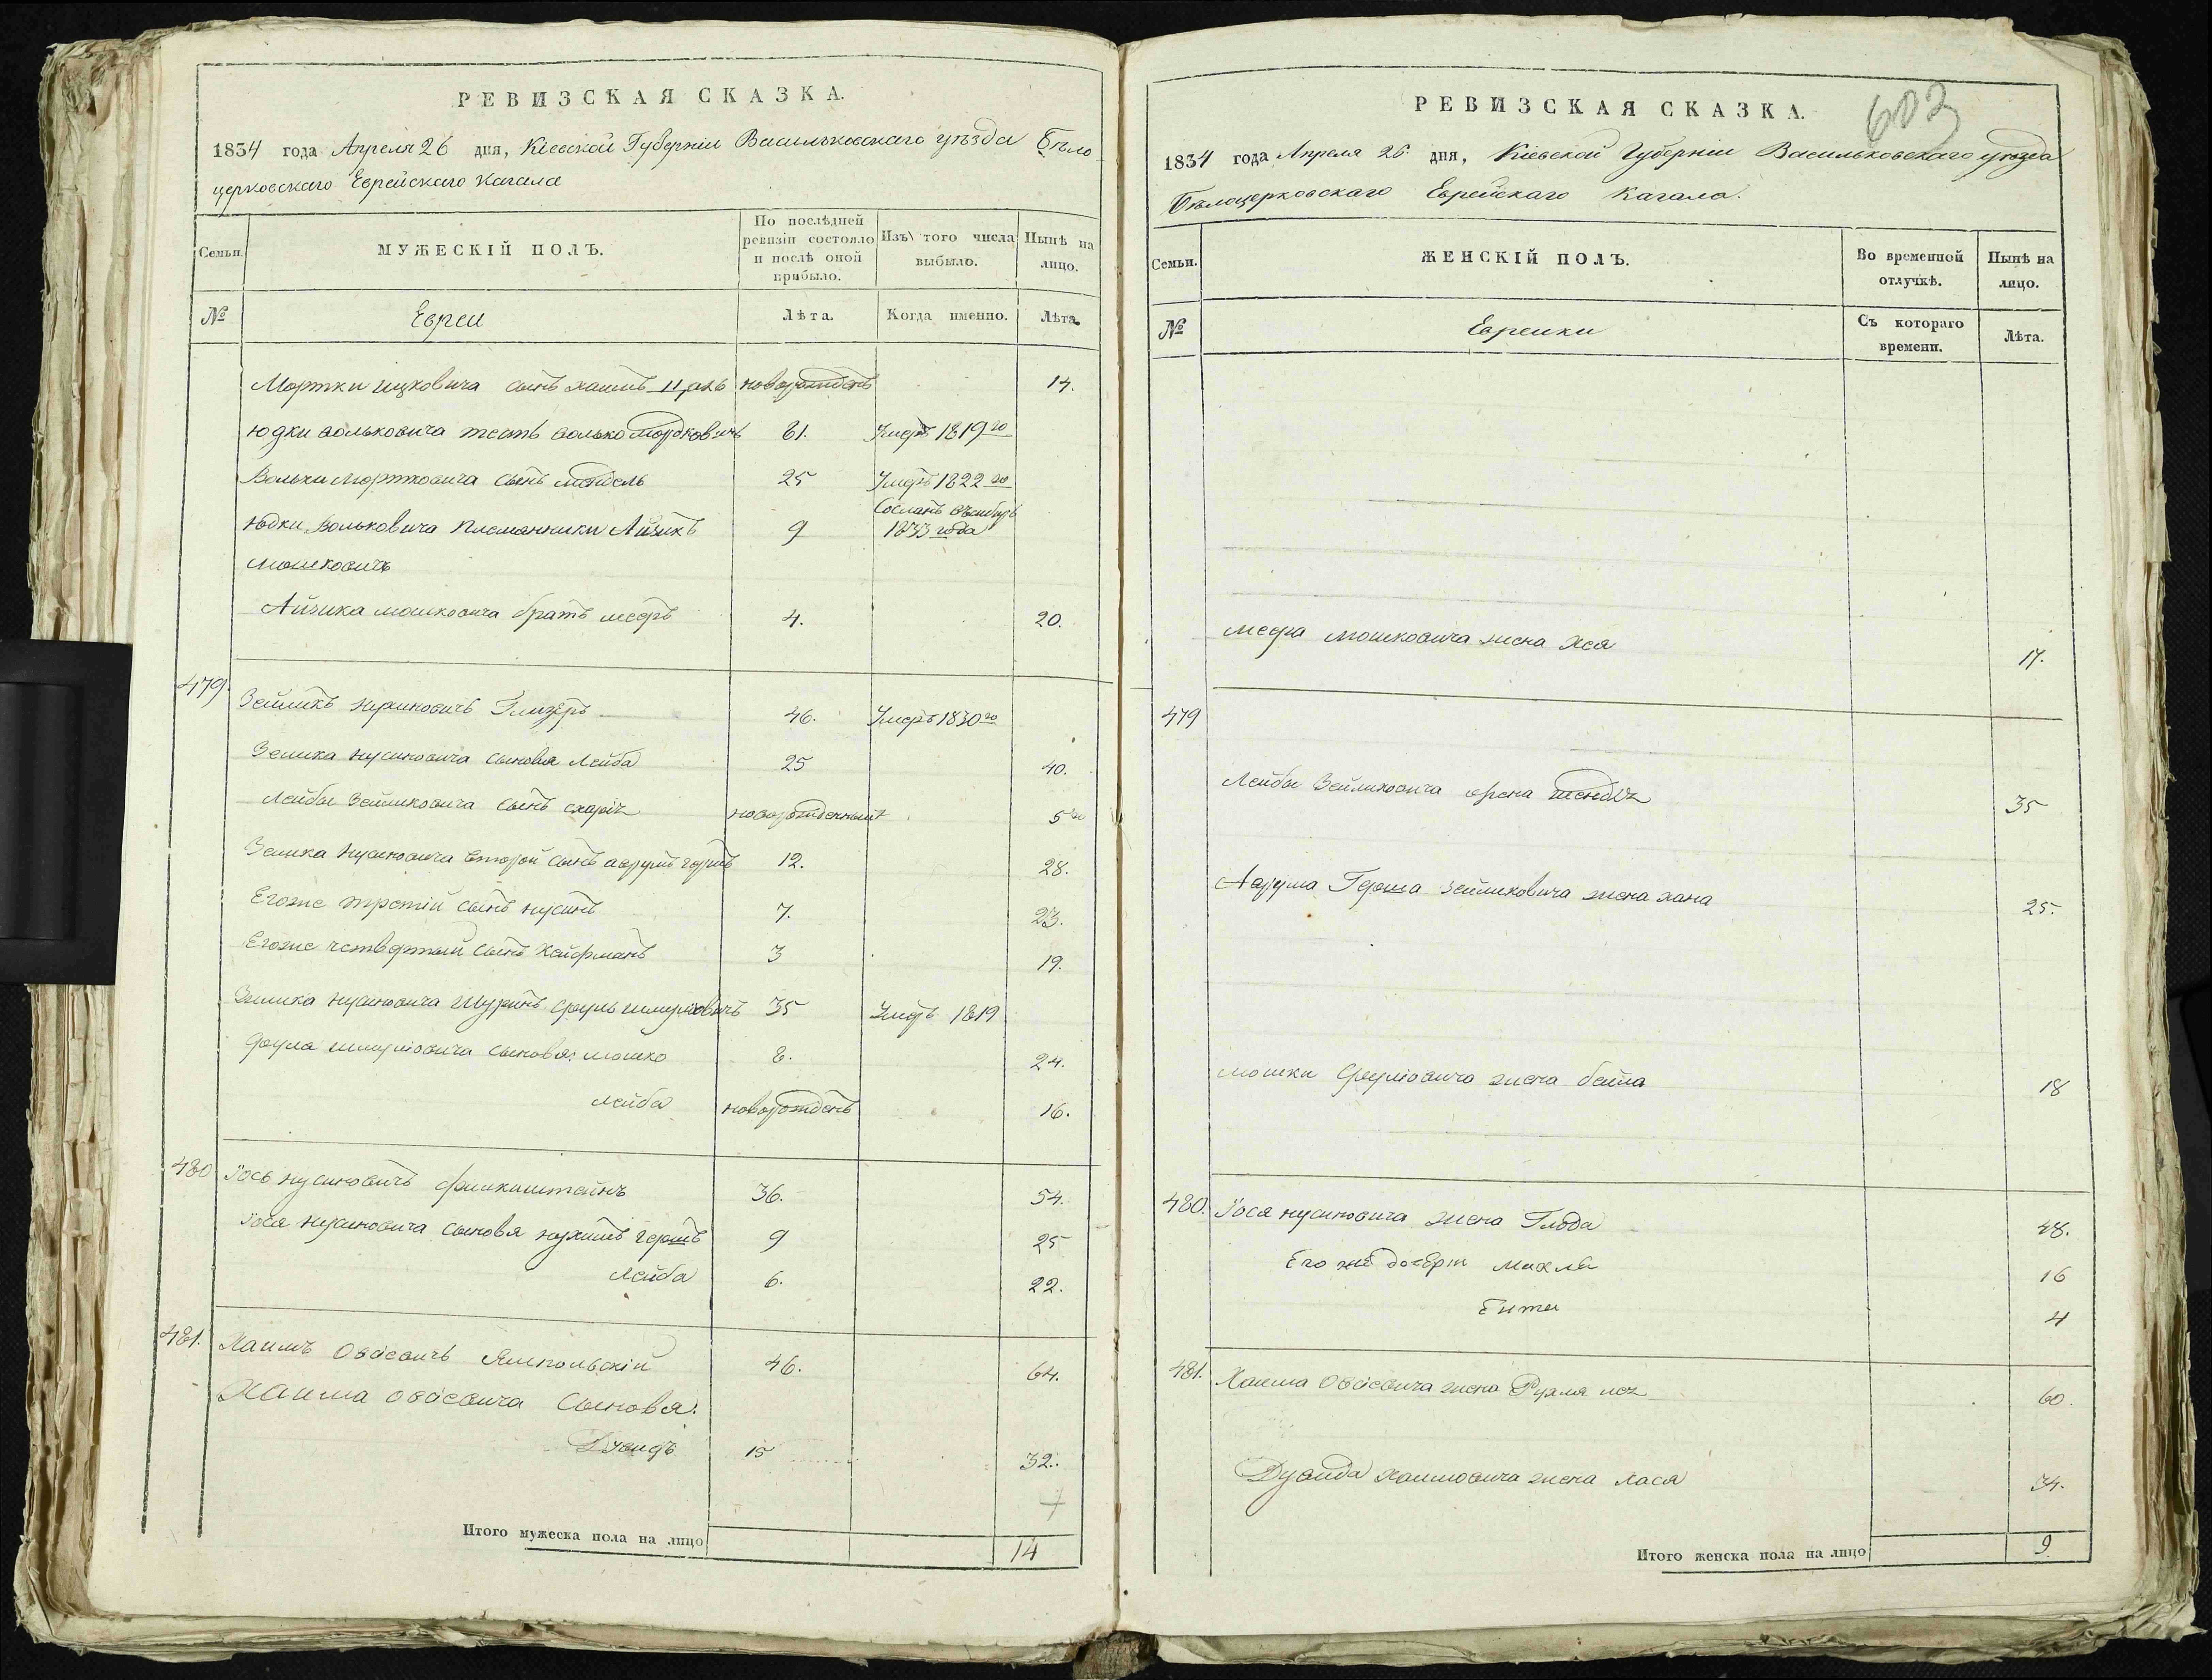 РЕВИЗСКАЯ СКАЗКА.
1834 года Апреля 26 дня, Кіевской Губерніи Васильковскаго уѣзда Бѣло
церковскаго Еврейскаго Кагала
Семьи.
МУЖЕСКІЙ ПОЛЪ.
По послѣдней
ревизіи состояло
и послѣ оной
прибыло.
Изъ того числа
выбыло.
Нынѣ на
лицо.
№
Евреи
Лѣта.
Когда именно.
Лѣта.
Мортки Ицковича сынъ хаимъ новорожденъ 14.
Юдки вольковича тесть волько Мордковичъ 61. Умеръ 1819го
Вольки Мортковича сынъ 25 Умеръ 1822го
Юдки Вольковича племянники Айзикъ 9 Сосланъ въ сибирь
1833 года
Мошковичъ
Айзика мошковича братъ мееръ 4. 20.
479. Зейликъ Глизеръ 46. Умеръ 1830го
Зелика нусиновича сыновья Лейба 25 40.
Лейбы Зейликовича сынъ новорожденный 5
Зелика Нусиновича второй сынъ аврумъ гершъ 12. 28.
Егоже третій сынъ нусинъ 7. 23.
Егоже четвертый сынъ Кайфманъ 3 19.
Зелика нусиновича Шуринъ сруль шмулiовичъ 35 Умеръ 1819
сруля шмулiовича сыновья: мошко 8. 24.
Лейба новорожденъ 16.
480 Іось нусиновичъ финкинштейнъ 36. 54.
Іося нусиновича сыновья нухимъ гершъ 9 25
Лейба 6. 22.
481. Хаимъ Овсіевичъ Ямпольскій 46. 64.
Хаима овсіевича Сыновья:
Дувидъ 15 32.
Итого мужеска пола на лицо 14
603
РЕВИЗСКАЯ СКАЗКА.
1834 года Апреля 26 дня, Кіевской Губерніи Васильковскаго уѣзда
Бѣлоцерковскаго Еврейскаго Кагала.
Семьи.
ЖЕНСКІЙ ПОЛЪ.
Во временной
отлучкѣ.
Нынѣ на
лицо.
№
Еврейки
Съ котораго
времени.
Лѣта.
меера мошковича жена хая 17.
479
Лейбы Зейликовича жена 35
Аврума Герша зейликовича жена хана 25.
мошки Срулiовича жена бейла 18
480. Іося нусиновича жена Глода 48.
Его же дочери Махля 16
Ента 4
481. Хаима Овсіевича жена 60.
Дувида хаимовича жена хася 34.
Итого женска пола на лицо 9